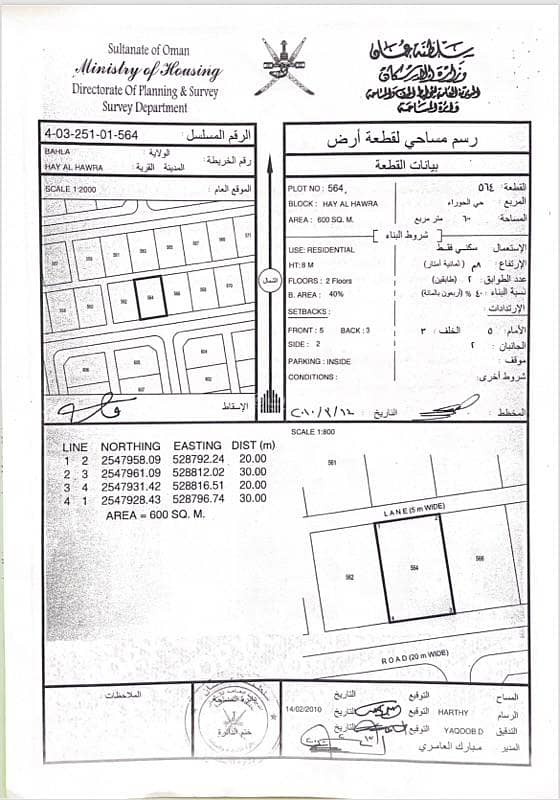 Sultanate of Oman
Ministry of Housing
Directorate Of Planning & Survey
Survey Department
سلطنة عمان
وزارة الإسكان
دائرة المساحة
4-03-251-01-564 الرقم المسلسل :
BAHLA الولاية :
HAY AL HAWRA المدينة القرية : رقم الخريطة :
SCALE 1:2000 الموقع العام :
571
570
564
562
560
558
604
602
605
606
607
الشمال
الإسقاط
رسم مساحي لقطعة أرض
بيانات القطعة
PLOT NO : 564, القطعة : ٥٦٤
BLOCK : HAY AL HAWRA المربع : حي الحوراء
AREA : 600 SQ. M. المساحة : ٦٠٠ متر مربع
شروط البناء
USE: RESIDENTIAL الإستعمال : سكني فقط
HT: 8 M الإرتفاع : ٨م (ثمانية أمتار)
FLOORS : 2 Floors عدد الطوابق : ٢ (طابقين)
B. AREA : 40% نسبة البناء : ٤٠ % (أربعون بالمائة)
SETBACKS : الإرتدادات :
FRONT : 5 BACK : 3 الأمام : ٥ الخلف : ٣
SIDE : 2 الجانبان : ٢
PARKING : INSIDE موقف :
CONDITIONS : شروط أخرى :
المخطط : التاريخ :
SCALE 1:800
LINE NORTHING EASTING DIST (m)
1 2 2547958.09 528792.24 20.00
2 3 2547961.09 528812.02 30.00
3 4 2547931.42 528816.51 20.00
4 1 2547928.43 528796.74 30.00
AREA = 600 SQ. M.
561
LANE (5 m WIDE)
1 2
562 564 566
4 3
ROAD (20 m WIDE)
الملاحظات :
ختم الدائرة
المساح التوقيع التاريخ
14/02/2010 التاريخ التوقيع HARTHY الرسام
التاريخ التوقيع YAQOOB D التدقيق
مبارك العامري المدير